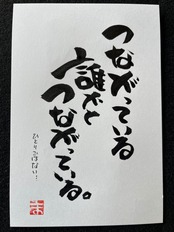 つながっている
誰かと
つながっている。
ひとりではない…